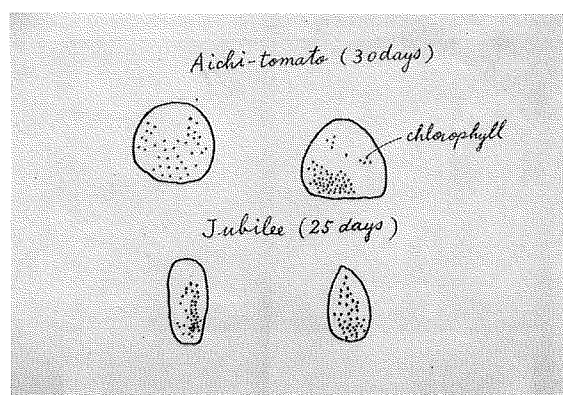 Aichi-tomato (30days)
chlorophyll
Jubilee (25 days)